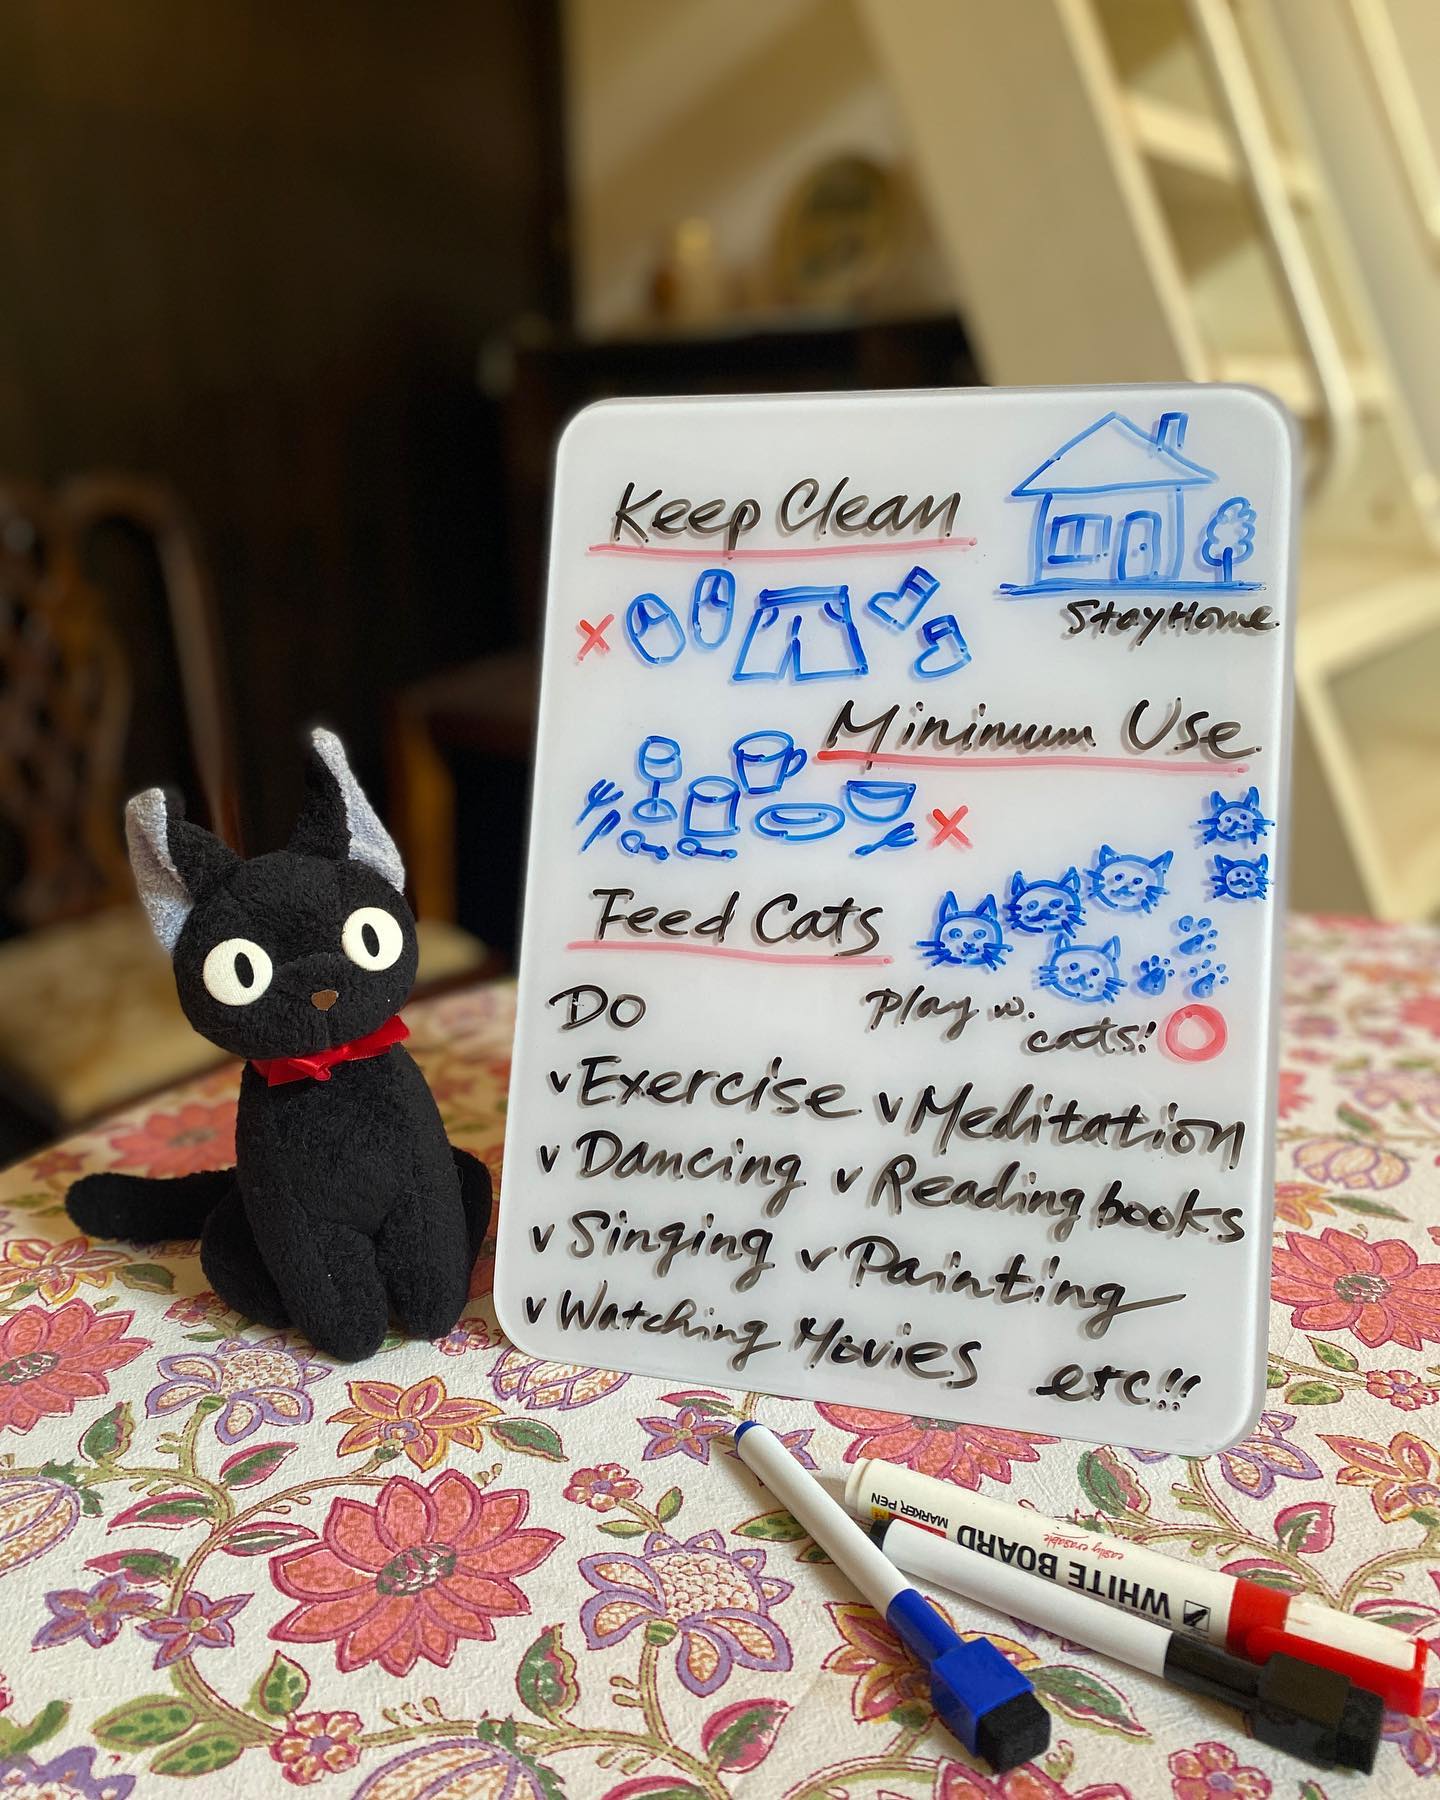 Keep Clean
Stay Home
Minimum Use
Feed Cats
Play w.
cats!
DO
v Exercise v Meditation
v Dancing v Reading books
v Singing v Painting
v Watching Movies etc!!
WHITE BOARD
MARKER PEN
easily erasable